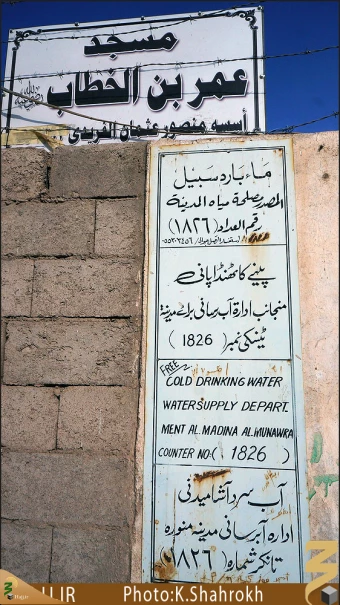 مسجد
عمر بن الخطاب
أسسه منصور عثمان الفريدي
ماء بارد سبيل
المصدر مصلحة مياه المدينة
رقم العداد (١٨٢٦)
پینے کا ٹھنڈا پانی
منجانب ادارۀ آب رسانی برائے مدینۃ
ٹینکی نمبر (1826)
FREE
COLD DRINKING WATER
WATER SUPPLY DEPART.
MENT AL MADINA AL.MUNAWRA
COUNTER NO-(1826)
آب سرد آشامیدنی
اداره آبرسانی مدینه منوره
تانکر شماره (١٨٢٦)
U.IR
Photo:K.Shahrokh